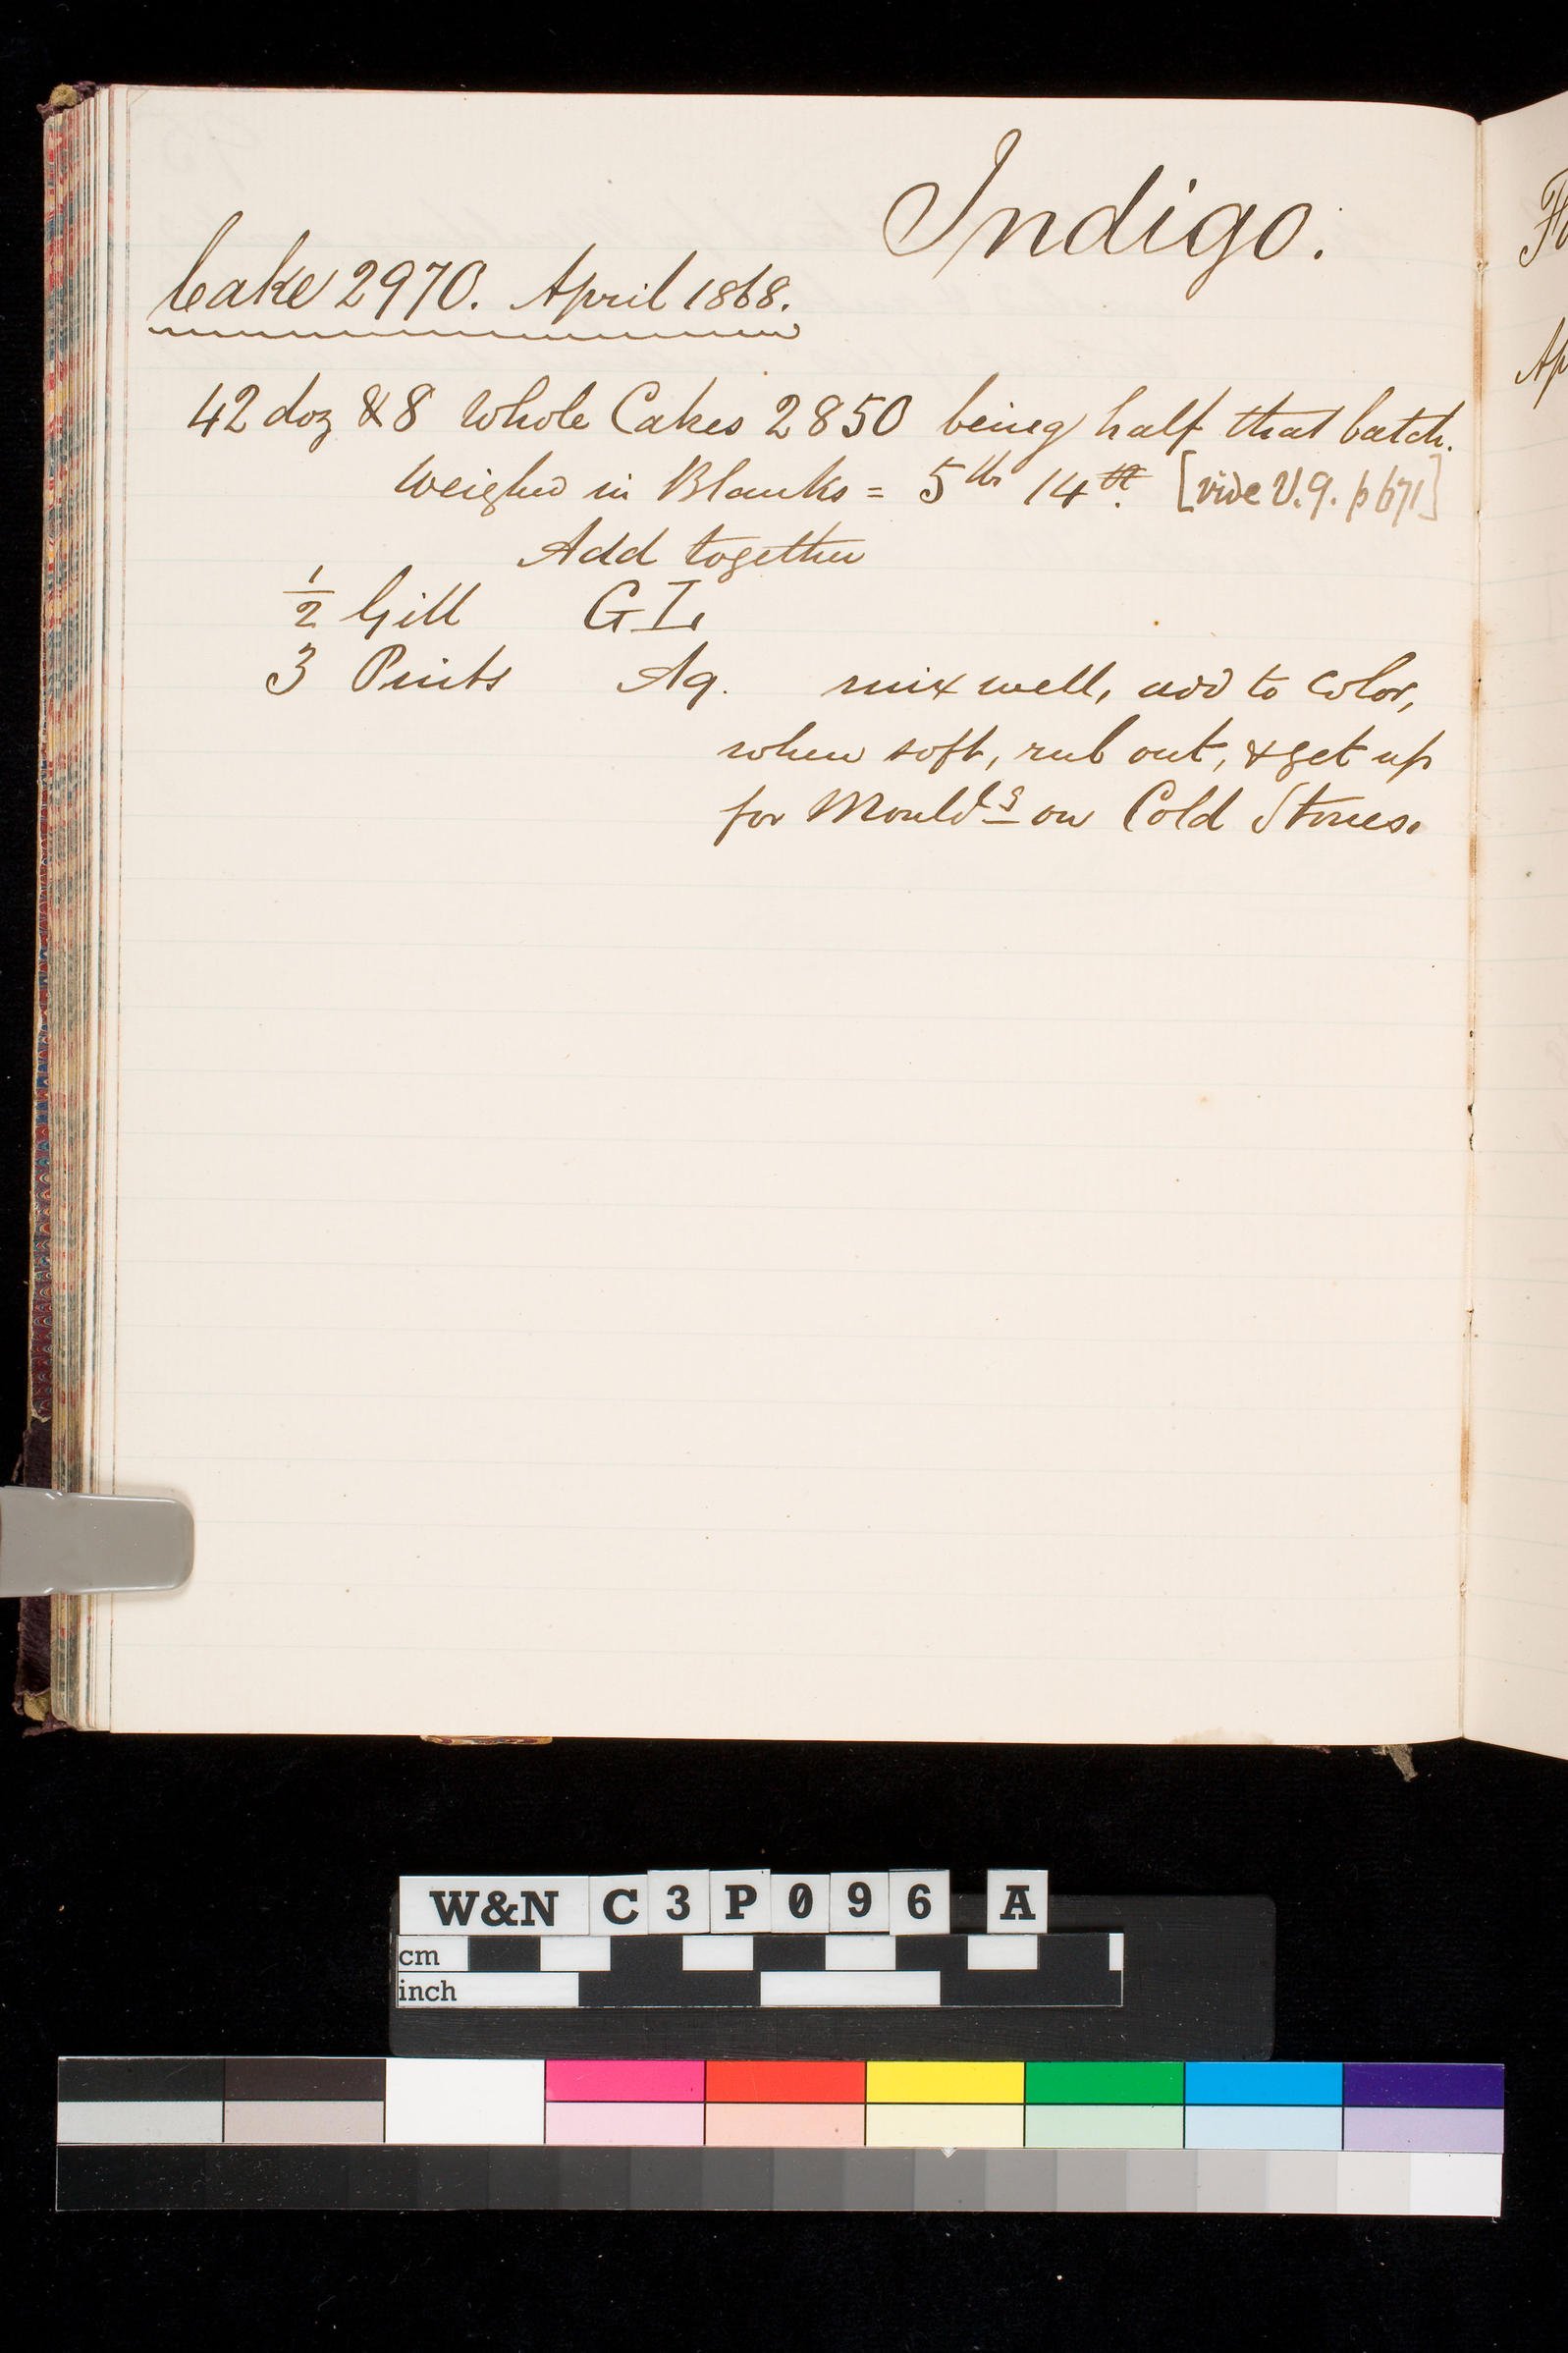 Indigo.
Cake 2970. April 1868.
42 doz & 8 Whole Cakes 2850 being half that batch.
Weighed in Blanks = 5 lbs 14 [vide V.9. p 671]
Add together
1/2 Gill GL
3 Pints Aq. mix well, add to Color,
when soft, rub out, & get up
for Mouldg on Cold Stones.
W&N C3P096 A
cm
inch